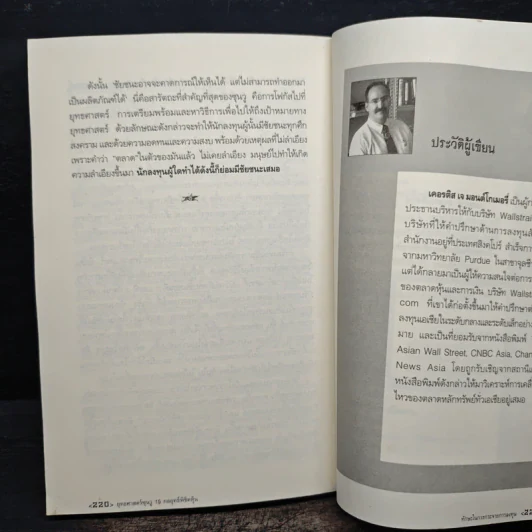 ดังนั้น ชัยชนะอาจจะคาดการณ์ให้เห็นได้ แต่ไม่สามารถทำออกมา
เป็นผลิตภัณฑ์ได้ นี่คือสารัตถะที่สำคัญที่สุดของซุนวู คือการโฟกัสไปที่
ยุทธศาสตร์ การเตรียมพร้อมและหาวิธีการเพื่อไปให้ถึงเป้าหมายทาง
ยุทธศาสตร์ ด้วยลักษณะดังกล่าวจะทำให้นักลงทุนผู้นั้นมีชัยชนะทุกศึก
สงคราม และด้วยความอดทนและความสงบ พร้อมด้วยเหตุผลที่ไม่ลำเอียง
เพราะคำว่า "ตลาด"ในตัวของมันแล้ว ไม่เคยลำเอียง มนุษย์ไปทำให้เกิด
ความลำเอียงขึ้นมา นักลงทุนผู้ใดทำได้ดังนี้ก็ย่อมมีชัยชนะเสมอ
<220> ยุทธศาสตร์ซุนวู 18 กลยุทธ์พิชิตหุ้น
ประวัติผู้เขียน
เคอรติส เจ มอนต์โกเมอรี่ เป็นผู้ก
ประธานบริหารให้กับบริษัท Wallstrai
บริษัทที่ให้คำปรึกษาด้านการลงทุน
สำนักงานอยู่ที่ประเทศสิงคโปร์ สำเร็จการ
จากมหาวิทยาลัย Purdue ในสาขาจุลชี
แต่ได้กลายมาเป็นผู้ให้ความสนใจต่อการ
ของตลาดหุ้นและการเงิน บริษัท Walls
com ที่เขาได้ก่อตั้งขึ้นมาให้คำปรึกษา
ลงทุนเอเชียในระดับกลางและระดับเล็กอย่าง
มาย และเป็นที่ยอมรับจากหนังสือพิมพ์
Asian Wall Street, CNBC Asia, Chan
News Asia โดยถูกรับเชิญจากสถานี
หนังสือพิมพ์ดังกล่าวให้มาวิเคราะห์การเคลื่
ไหวของตลาดหลักทรัพย์ทั่วเอเชียอยู่เสมอ